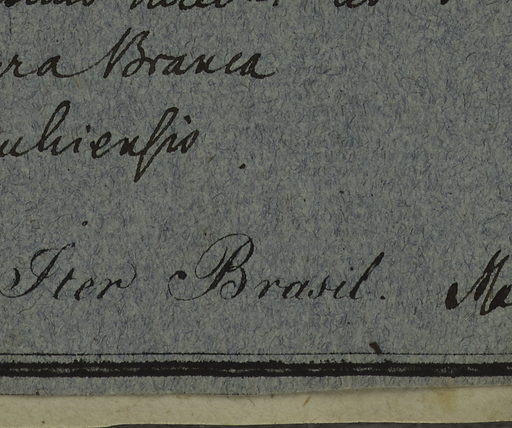 ra Branca
uhiensis
Iter Brasil. Ma